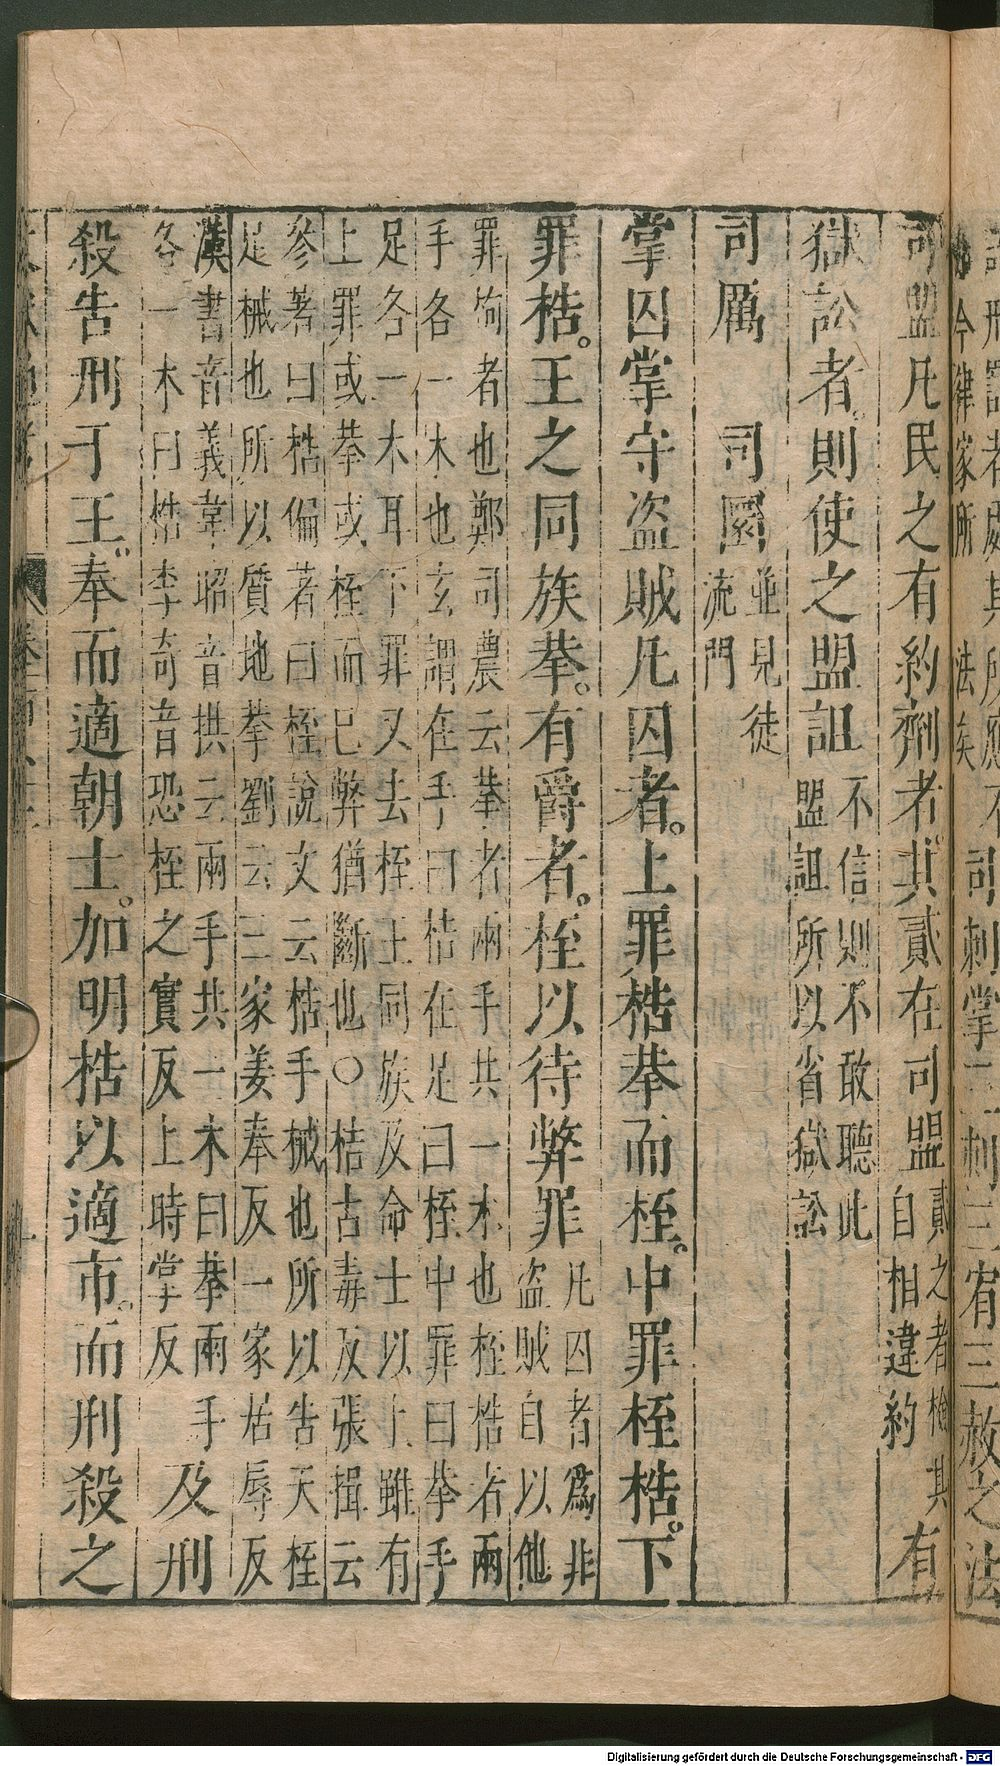 司刺掌三刺三宥三赦之法
司盟凡民之有約劑者其貳在司盟貳之者檢其自相違約有
獄訟者則使之盟詛不信則不敢聽此盟詛所以省獄訟
司厲 司圜並見徒流門
掌囚掌守盜賊凡囚者上罪梏拲而桎中罪桎梏下
罪梏王之同族拲有爵者桎以待弊罪凡囚者爲非盜賊自以他
罪拘者也鄭司農云拲者兩手共一木也桎梏者兩
手各一木也玄謂在手曰梏在足曰桎中罪曰拲手
足各一木耳下罪又去桎王同族及命士以上雖有
上罪或拲或桎而已弊猶斷也○梏古毒反張揖云
參著曰梏偏著曰桎說文云梏手械也所以告天桎
足械也所以質地拲劉云三家姜奉反一家居辱反
漢書音義韋昭音拱云兩手共一木曰拲兩手
各一木曰梏李奇音恐桎之實反上時掌反
及刑
殺告刑于王奉而適朝士加明梏以適市而刑殺之
Digitalisierung gefördert durch die Deutsche Forschungsgemeinschaft - DFG